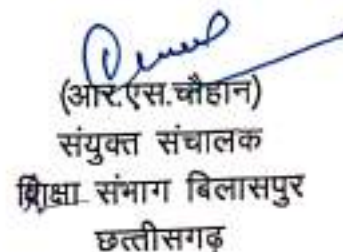 (आर.एस.चौहान)
संयुक्त संचालक
शिक्षा संभाग बिलासपुर
छत्तीसगढ़